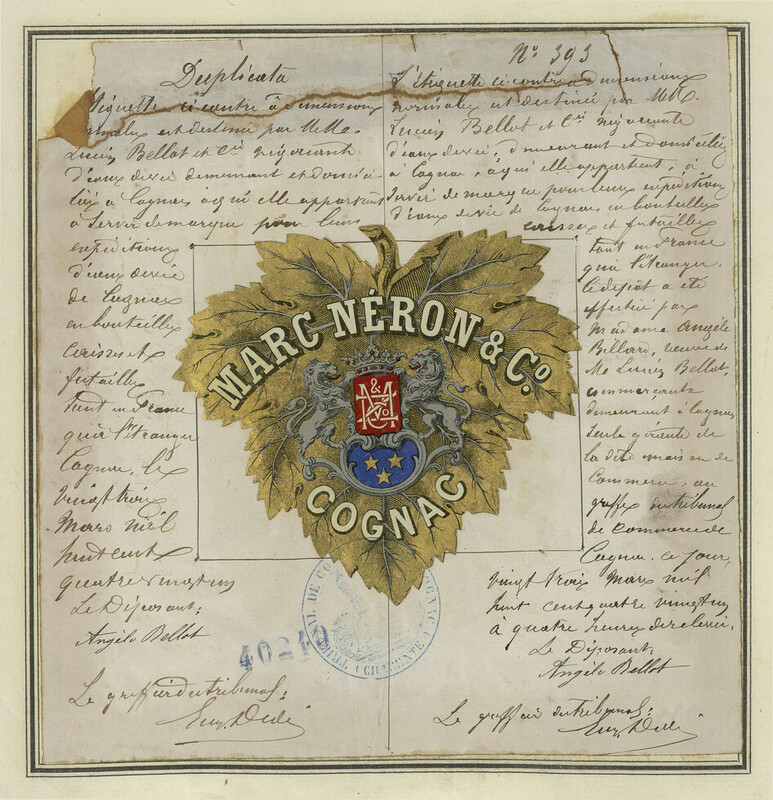 Duplicata
Vignette ci contre à dimensions
normales est destinée par MM.
Lucien Bellot et Cie négociants
d'eaux de vie demeurant et domici-
liés à Cognac à qui elle appartient
à servir de marque pour leurs
expéditions
d'eaux de vie
de Cognac
en bouteilles
caisses et
futailles
tant en France
qu'à l'étranger
Cognac, le
vingt trois
Mars mil
huit cent
quatre vingt un
Le Déposant:
Angèle Bellot
Le greffier du tribunal:
No 393
L'étiquette ci contre à dimensions
normales est destinée par MM.
Lucien Bellot et Cie négociants
d'eaux de vie, demeurant et domiciliés
à Cognac, à qui elle appartient, à
servir de marque pour leurs expéditions
d'eaux de vie de Cognac en bouteilles
caisses et futailles
tant en France
qu'à l'étranger.
Ce dépôt a été
effectué par
Madame Angèle
Billard, veuve de
Mr Lucien Bellot,
commerçante
demeurant à Cognac,
seule gérante de
la dite maison de
Commerce, au
greffe du tribunal
de commerce de
Cognac, ce jour,
vingt trois Mars mil
huit cent quatre vingt un
à quatre heures de relevée.
Le Déposant:
Angèle Bellot
Le greffier du tribunal:
MARC NÉRON & Co.
M & N Co
COGNAC
TRIBUNAL DE COMMERCE COGNAC (CHARENTE)